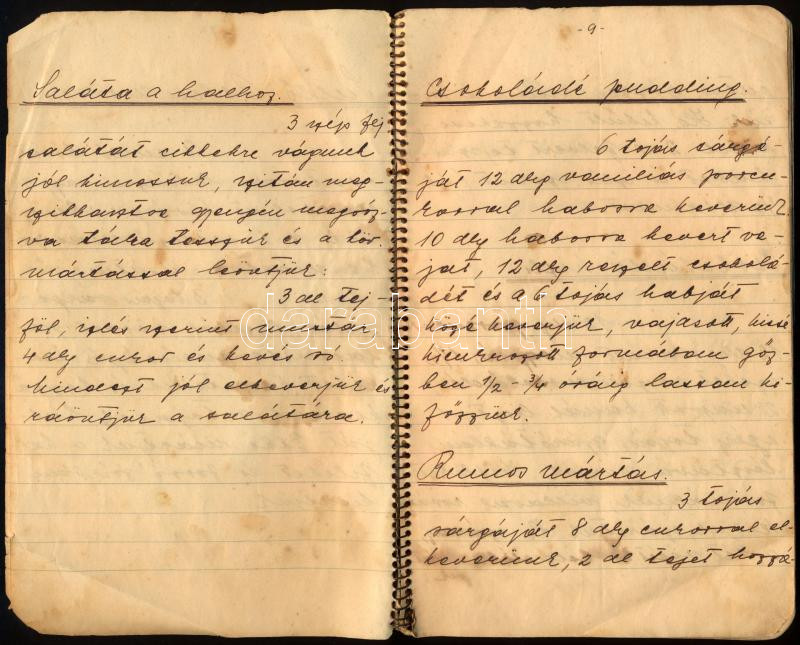 Saláta a halhoz.
3 szép fej
salátát cikkekre vágunk
jól kimossuk, szitán meg-
szikkasztva
va tálra tesszük és a köv.
mártással leöntjük:
3 dl tej-
föl, izlés szerint mustár
4 dkg cukor és kevés só.
Mindezt jól elkeverjük és
ráöntjük a salátára.
-9-
Csokoládé pudding.
6 tojás sárgá-
ját 12 dkg vaniliás porcu-
korral habosra keverünk.
10 dkg habosra kevert va-
jat, 12 dkg reszelt csokolá-
dét és a 6 tojás habját
közé keverjük, vajazott, kissé
kicukrozott formában gőz-
ben 1/2 - 3/4 óráig lassan ki-
főzzük.
Rumos mártás.
3 tojás
sárgáját 8 dkg cukorral el-
keverünk, 2 dl tejet hozzá-
darabanth